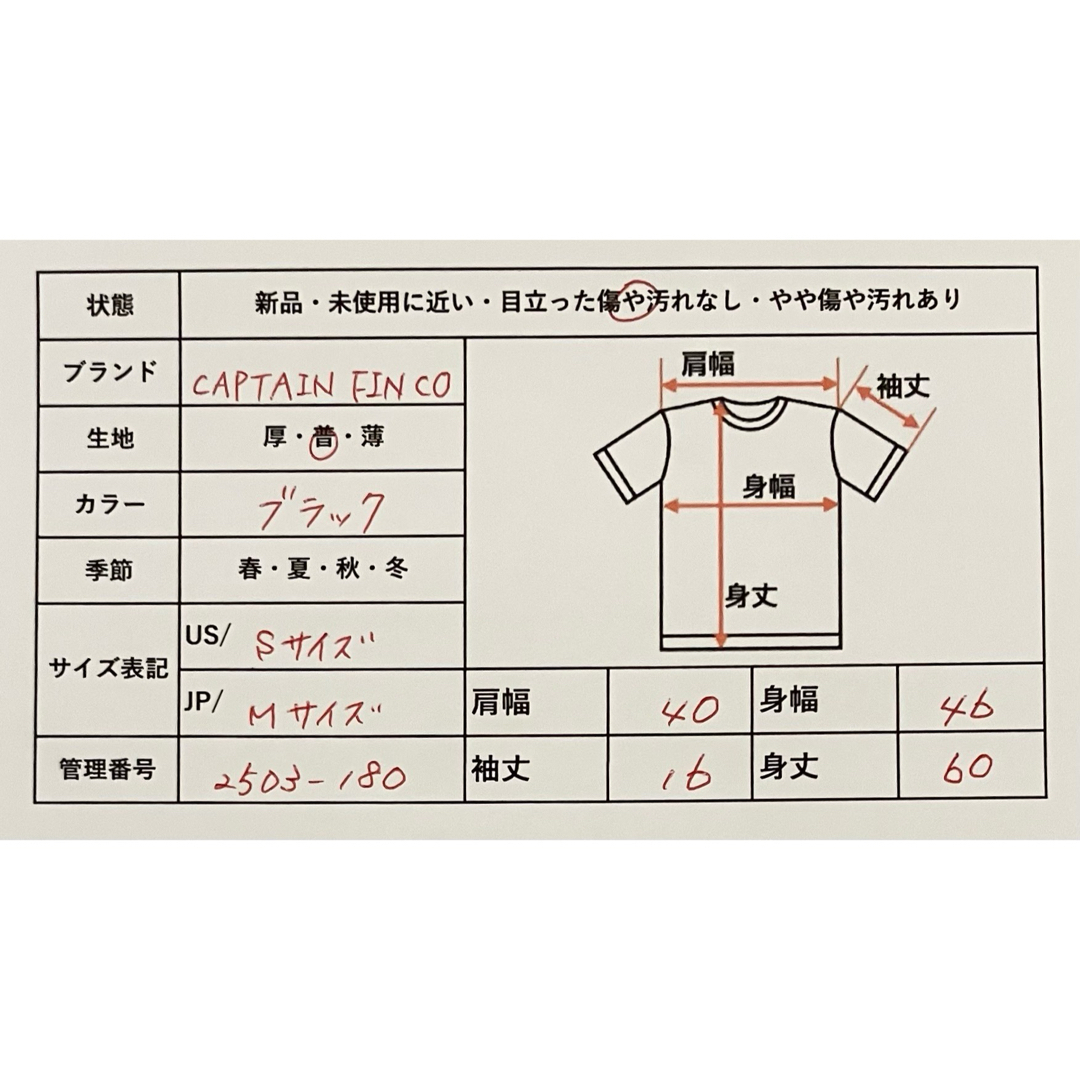 状態 新品・未使用に近い・目立った傷や汚れなし・やや傷や汚れあり
ブランド CAPTAIN FIN CO
生地 厚・普・薄
カラー ブラック
季節 春・夏・秋・冬
サイズ表記 US/ Sサイズ
JP/ Mサイズ
管理番号 2503-180
肩幅
袖丈
身幅
身丈
肩幅 40 身幅 46
袖丈 16 身丈 60